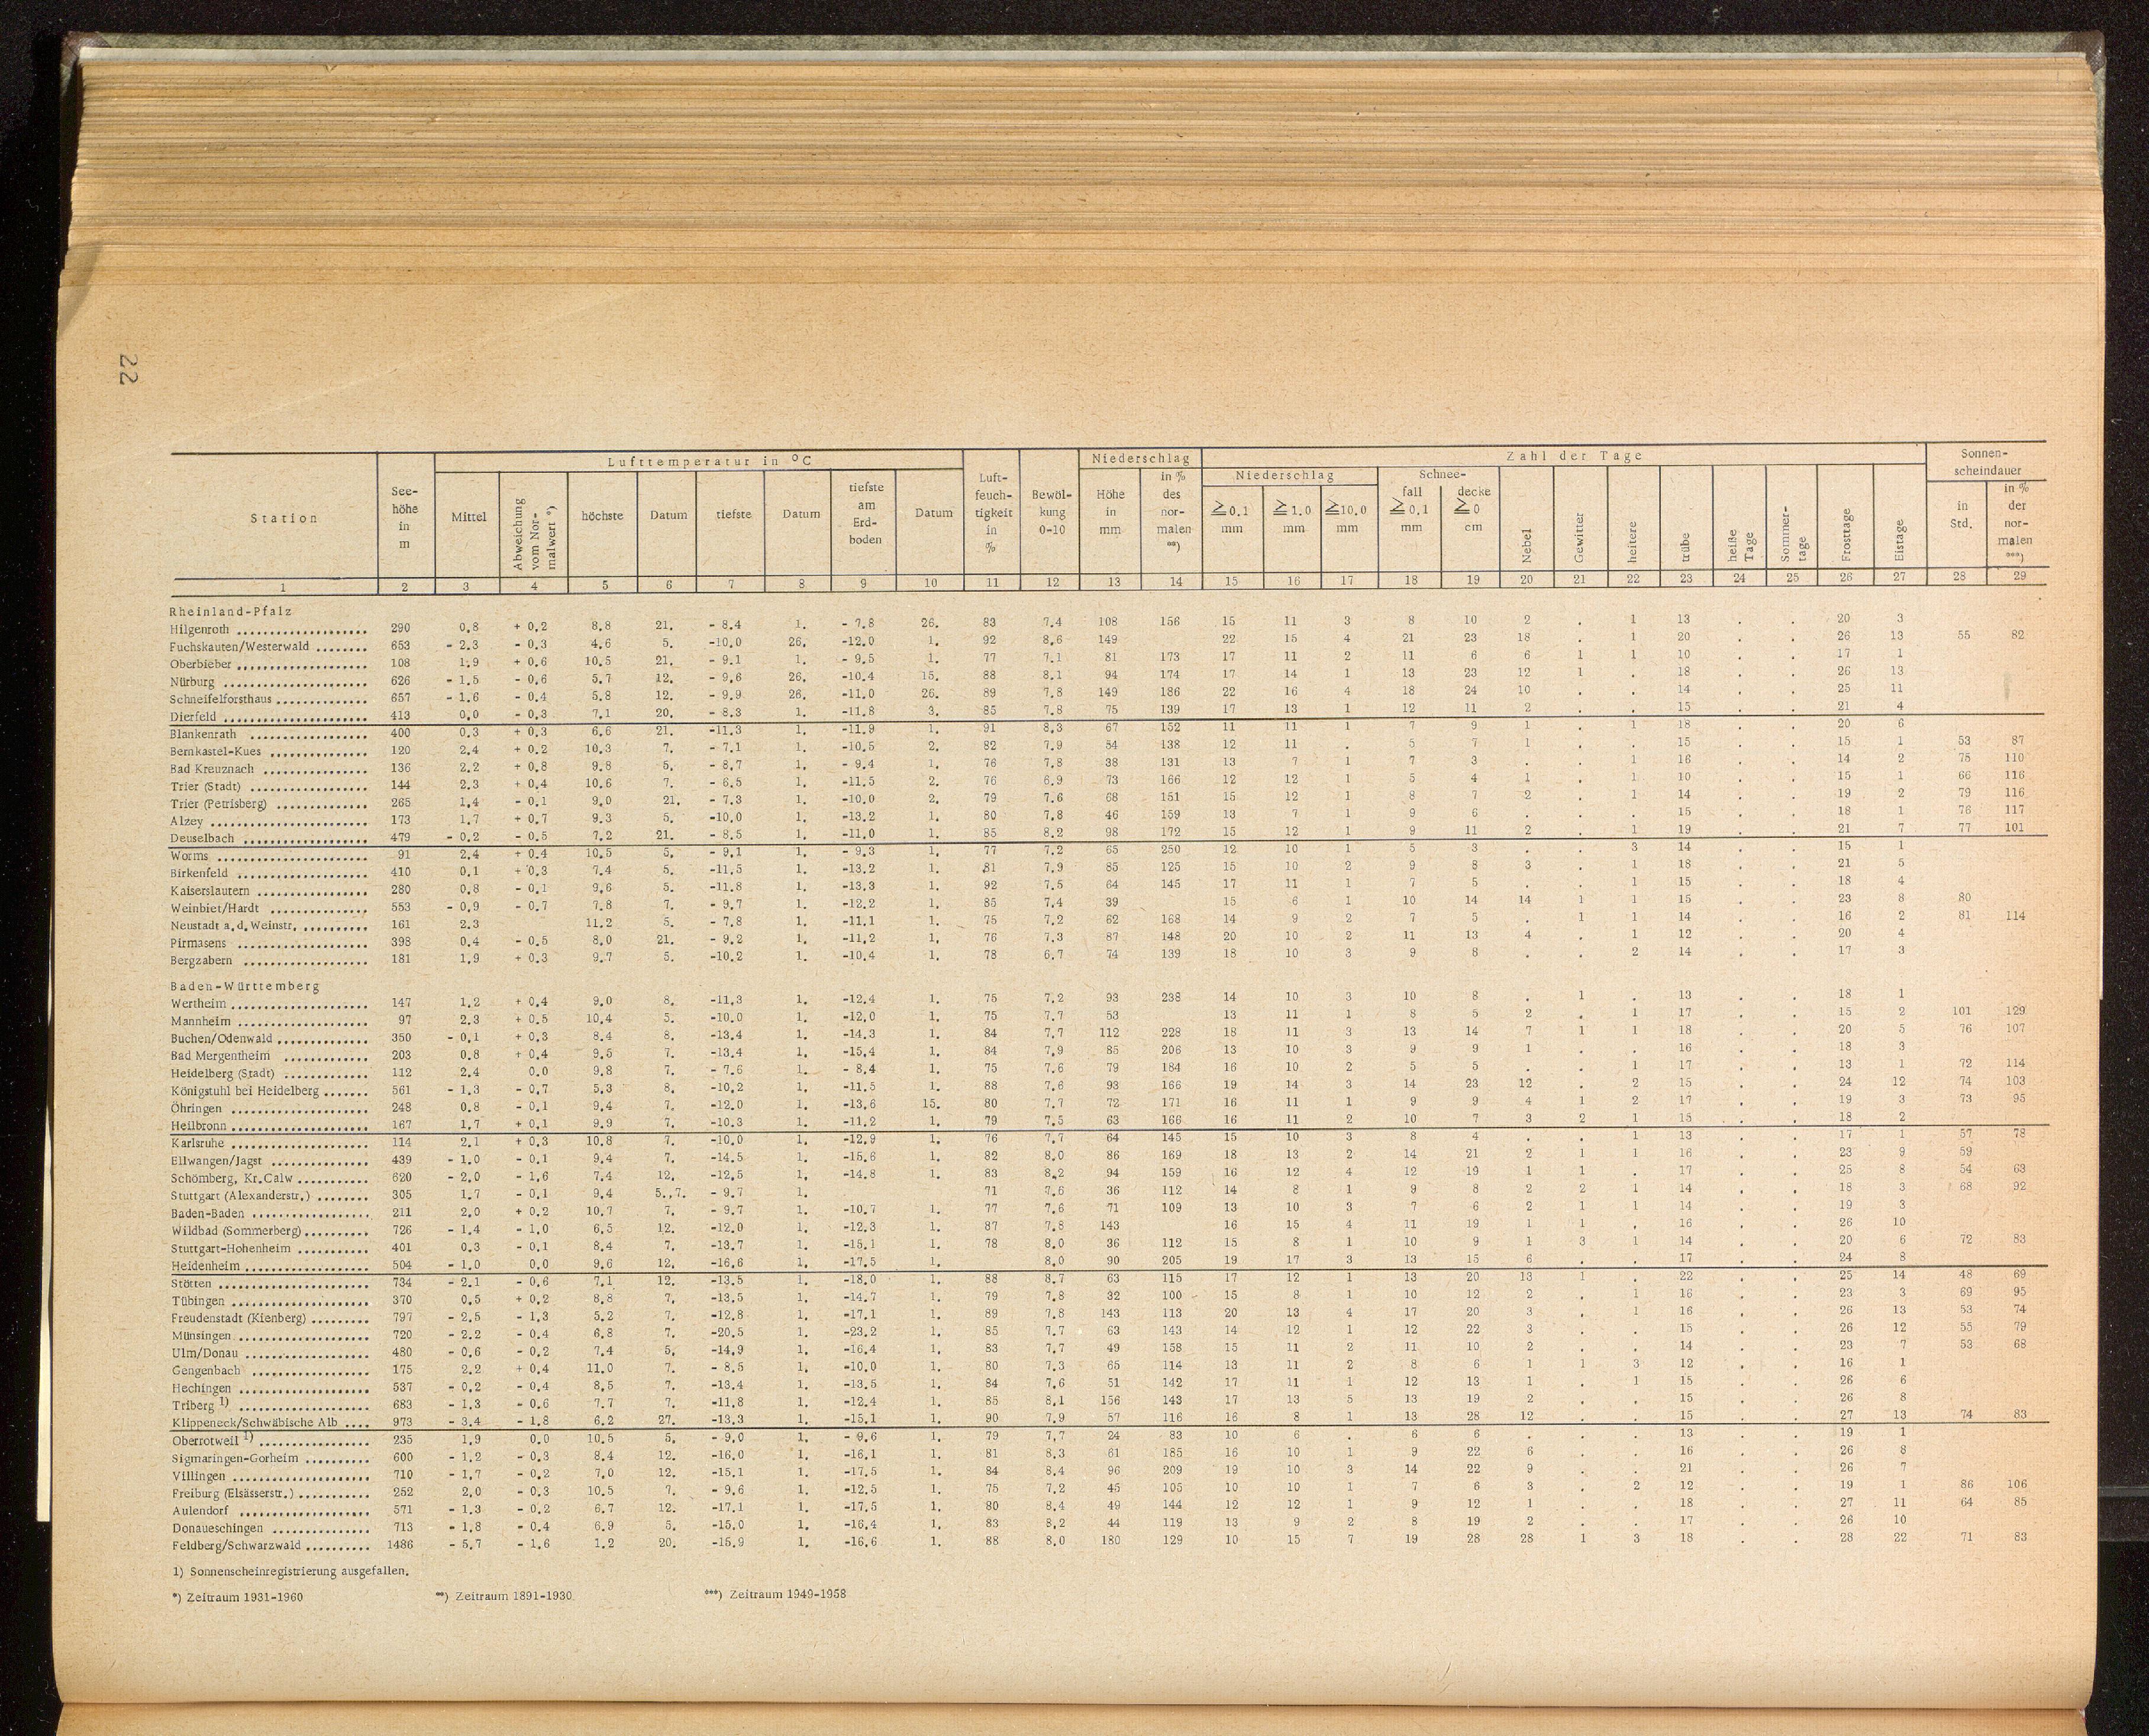 22
Lufttemperatur in °C Niederschlag Zahl der Tage Sonnenscheindauer
Station Seehöhe in m Mittel Abweichung vom Normalwert *) höchste Datum tiefste Datum tiefste am Erdboden Datum Luftfeuchtigkeit in % Bewölkung 0-10 Höhe in mm in % des normalen **) Niederschlag ≧0.1 mm ≧1.0 mm ≧10.0 mm Schneefall ≧0.1 mm decke ≧0 cm Nebel Gewitter heitere trübe heiße Tage Sommertage Frosttage Eistage in Std. in % der normalen ***)
1 2 3 4 5 6 7 8 9 10 11 12 13 14 15 16 17 18 19 20 21 22 23 24 25 26 27 28 29
Rheinland-Pfalz
Hilgenroth 290 0,8 + 0,2 8,8 21. - 8,4 1. - 7,8 26. 83 7,4 108 156 15 11 3 8 10 2 . 1 13 . . 20 3
Fuchskauten/Westerwald 653 - 2,3 - 0,3 4,6 5. -10,0 26. -12,0 1. 92 8,6 149 22 15 4 21 23 18 . 1 20 . . 26 13 55 82
Oberbieber 108 1,9 + 0,6 10,5 21. - 9,1 1. - 9,5 1. 77 7,1 81 173 17 11 2 11 6 6 1 1 10 . . 17 1
Nürburg 626 - 1,5 - 0,6 5,7 12. - 9,6 26. -10,4 15. 88 8,1 94 174 17 14 1 13 23 12 1 . 18 . . 26 13
Schneifelforsthaus 657 - 1,6 - 0,4 5,8 12. - 9,9 26. -11,0 26. 89 7,8 149 186 22 16 4 18 24 10 . . 14 . . 25 11
Dierfeld 413 0,0 - 0,3 7,1 20. - 8,3 1. -11,8 3. 85 7,8 75 139 17 13 1 12 11 2 . . 15 . . 21 4
Blankenrath 400 0,3 + 0,3 6,6 21. -11,3 1. -11,9 1. 91 8,3 67 152 11 11 1 7 9 1 . 1 18 . . 20 6
Bernkastel-Kues 120 2,4 + 0,2 10,3 7. - 7,1 1. -10,5 2. 82 7,9 54 138 12 11 . 5 7 1 . . 15 . . 15 1 53 87
Bad Kreuznach 136 2,2 + 0,8 9,8 5. - 8,7 1. - 9,4 1. 76 7,8 38 131 13 7 1 7 3 . . 1 16 . . 14 2 75 110
Trier (Stadt) 144 2,3 + 0,4 10,6 7. - 6,5 1. -11,5 2. 76 6,9 73 166 12 12 1 5 4 1 . 1 10 . . 15 1 66 116
Trier (Petrisberg) 265 1,4 - 0,1 9,0 21. - 7,3 1. -10,0 2. 79 7,6 68 151 15 12 1 8 7 2 . 1 14 . . 19 2 79 116
Alzey 173 1,7 + 0,7 9,3 5. -10,0 1. -13,2 1. 80 7,8 46 159 13 7 1 9 6 . . . 15 . . 18 1 76 117
Deuselbach 479 - 0,2 - 0,5 7,2 21. - 8,5 1. -11,0 1. 85 8,2 98 172 15 12 1 9 11 2 . 1 19 . . 21 7 77 101
Worms 91 2,4 + 0,4 10,5 5. - 9,1 1. - 9,3 1. 77 7,2 65 250 12 10 1 5 3 . . 3 14 . . 15 1
Birkenfeld 410 0,1 + 0,3 7,4 5. -11,5 1. -13,2 1. 81 7,9 85 125 15 10 2 9 8 3 . 1 18 . . 21 5
Kaiserslautern 280 0,8 - 0,1 9,6 5. -11,8 1. -13,3 1. 92 7,5 64 145 17 11 1 7 5 . . 1 15 . . 18 4
Weinbiet/Hardt 553 - 0,9 - 0,7 7,8 7. - 9,7 1. -12,2 1. 85 7,4 39 15 6 1 10 14 14 1 1 15 . . 23 8 80
Neustadt a.d.Weinstr. 161 2,3 11,2 5. - 7,8 1. -11,1 1. 75 7,2 62 168 14 9 2 7 5 . 1 1 14 . . 16 2 81 114
Pirmasens 398 0,4 - 0,5 8,0 21. - 9,2 1. -11,2 1. 76 7,3 87 148 20 10 2 11 13 4 . 1 12 . . 20 4
Bergzabern 181 1,9 + 0,3 9,7 5. -10,2 1. -10,4 1. 78 6,7 74 139 18 10 3 9 8 . . 2 14 . . 17 3
Baden-Württemberg
Wertheim 147 1,2 + 0,4 9,0 8. -11,3 1. -12,4 1. 75 7,2 93 238 14 10 3 10 8 . 1 . 13 . . 18 1
Mannheim 97 2,3 + 0,5 10,4 5. -10,0 1. -12,0 1. 75 7,7 53 13 11 1 8 5 2 . 1 17 . . 15 2 101 129
Buchen/Odenwald 350 - 0,1 + 0,3 8,4 8. -13,4 1. -14,3 1. 84 7,7 112 228 18 11 3 13 14 7 1 1 18 . . 20 5 76 107
Bad Mergentheim 203 0,8 + 0,4 9,5 7. -13,4 1. -15,4 1. 84 7,9 85 206 13 10 3 9 9 1 . . 16 . . 18 3
Heidelberg (Stadt) 112 2,4 0,0 9,8 7. - 7,6 1. - 8,4 1. 75 7,6 79 184 16 10 2 5 5 . . 1 17 . . 13 1 72 114
Königstuhl bei Heidelberg 561 - 1,3 - 0,7 5,3 8. -10,2 1. -11,5 1. 88 7,6 93 166 19 14 3 14 23 12 . 2 15 . . 24 12 74 103
Öhringen 248 0,8 - 0,1 9,4 7. -12,0 1. -13,6 15. 80 7,7 72 171 16 11 1 9 9 4 1 2 17 . . 19 3 73 95
Heilbronn 167 1,7 + 0,1 9,9 7. -10,3 1. -11,2 1. 79 7,5 63 166 16 11 2 10 7 3 2 1 15 . . 18 2
Karlsruhe 114 2,1 + 0,3 10,8 7. -10,0 1. -12,9 1. 76 7,7 64 145 15 10 3 8 4 . . 1 13 . . 17 1 57 78
Ellwangen/Jagst 439 - 1,0 - 0,1 9,4 7. -14,5 1. -15,6 1. 82 8,0 86 169 18 13 2 14 21 2 1 1 16 . . 23 9 59
Schömberg, Kr.Calw 620 - 2,0 - 1,6 7,4 12. -12,5 1. -14,8 1. 83 8,2 94 159 16 12 4 12 19 1 1 . 17 . . 25 8 54 63
Stuttgart (Alexanderstr.) 305 1,7 - 0,1 9,4 5.,7. - 9,7 1. 71 7,6 36 112 14 8 1 9 8 2 2 1 14 . . 18 3 68 92
Baden-Baden 211 2,0 + 0,2 10,7 7. - 9,7 1. -10,7 1. 77 7,6 71 109 13 10 3 7 6 2 1 1 14 . . 19 3
Wildbad (Sommerberg) 726 - 1,4 - 1,0 6,5 12. -12,0 1. -12,3 1. 87 7,8 143 16 15 4 11 19 1 1 . 16 . . 26 10
Stuttgart-Hohenheim 401 0,3 - 0,1 8,4 7. -13,7 1. -15,1 1. 78 8,0 36 112 15 8 1 10 9 1 3 1 14 . . 20 6 72 83
Heidenheim 504 - 1,0 0,0 9,6 12. -16,6 1. -17,5 1. 8,0 90 205 19 17 3 13 15 6 . . 17 . . 24 8
Stötten 734 - 2,1 - 0,6 7,1 12. -13,5 1. -18,0 1. 88 8,7 63 115 17 12 1 13 20 13 1 . 22 . . 25 14 48 69
Tübingen 370 0,5 + 0,2 8,8 7. -13,5 1. -14,7 1. 79 7,8 32 100 15 8 1 10 12 2 . 1 16 . . 23 3 69 95
Freudenstadt (Kienberg) 797 - 2,5 - 1,3 5,2 7. -12,8 1. -17,1 1. 89 7,8 143 113 20 13 4 17 20 3 . 1 16 . . 26 13 53 74
Münsingen 720 - 2,2 - 0,4 6,8 7. -20,5 1. -23,2 1. 85 7,7 63 143 14 12 1 12 22 3 . . 15 . . 26 12 55 79
Ulm/Donau 480 - 0,6 - 0,2 7,4 5. -14,9 1. -16,4 1. 83 7,7 49 158 15 11 2 11 10 2 . . 14 . . 23 7 53 68
Gengenbach 175 2,2 + 0,4 11,0 7. - 8,5 1. -10,0 1. 80 7,3 65 114 13 11 2 8 6 1 1 3 12 . . 16 1
Hechingen 537 - 0,2 - 0,4 8,5 7. -13,4 1. -13,5 1. 84 7,6 51 142 17 11 1 12 13 1 . 1 15 . . 26 6
Triberg 1) 683 - 1,3 - 0,6 7,7 7. -11,8 1. -12,4 1. 85 8,1 156 143 17 13 5 13 19 2 . . 15 . . 26 8
Klippeneck/Schwäbische Alb 973 - 3,4 - 1,8 6,2 27. -13,3 1. -15,1 1. 90 7,9 57 116 16 8 1 13 28 12 . . 15 . . 27 13 74 83
Oberrotweil 1) 235 1,9 0,0 10,5 5. - 9,0 1. - 9,6 1. 79 7,7 24 83 10 6 . 6 6 . . . 13 . . 19 1
Sigmaringen-Gorheim 600 - 1,2 - 0,3 8,4 12. -16,0 1. -16,1 1. 81 8,3 61 185 16 10 1 9 22 6 . . 16 . . 26 8
Villingen 710 - 1,7 - 0,2 7,0 12. -15,1 1. -17,5 1. 84 8,4 96 209 19 10 3 14 22 9 . . 21 . . 26 7
Freiburg (Elsässerstr.) 252 2,0 - 0,3 10,5 7. - 9,6 1. -12,5 1. 75 7,2 45 105 10 10 1 7 6 3 . 2 12 . . 19 1 86 106
Aulendorf 571 - 1,3 - 0,2 6,7 12. -17,1 1. -17,5 1. 80 8,4 49 144 12 12 1 9 12 1 . . 18 . . 27 11 64 85
Donaueschingen 713 - 1,8 - 0,4 6,9 5. -15,0 1. -16,4 1. 83 8,2 44 119 13 9 2 8 19 2 . . 17 . . 26 10
Feldberg/Schwarzwald 1486 - 5,7 - 1,6 1,2 20. -15,9 1. -16,6 1. 88 8,0 180 129 10 15 7 19 28 28 1 3 18 . . 28 22 71 83
1) Sonnenscheinregistrierung ausgefallen.
*) Zeitraum 1931-1960 **) Zeitraum 1891-1930 ***) Zeitraum 1949-1958